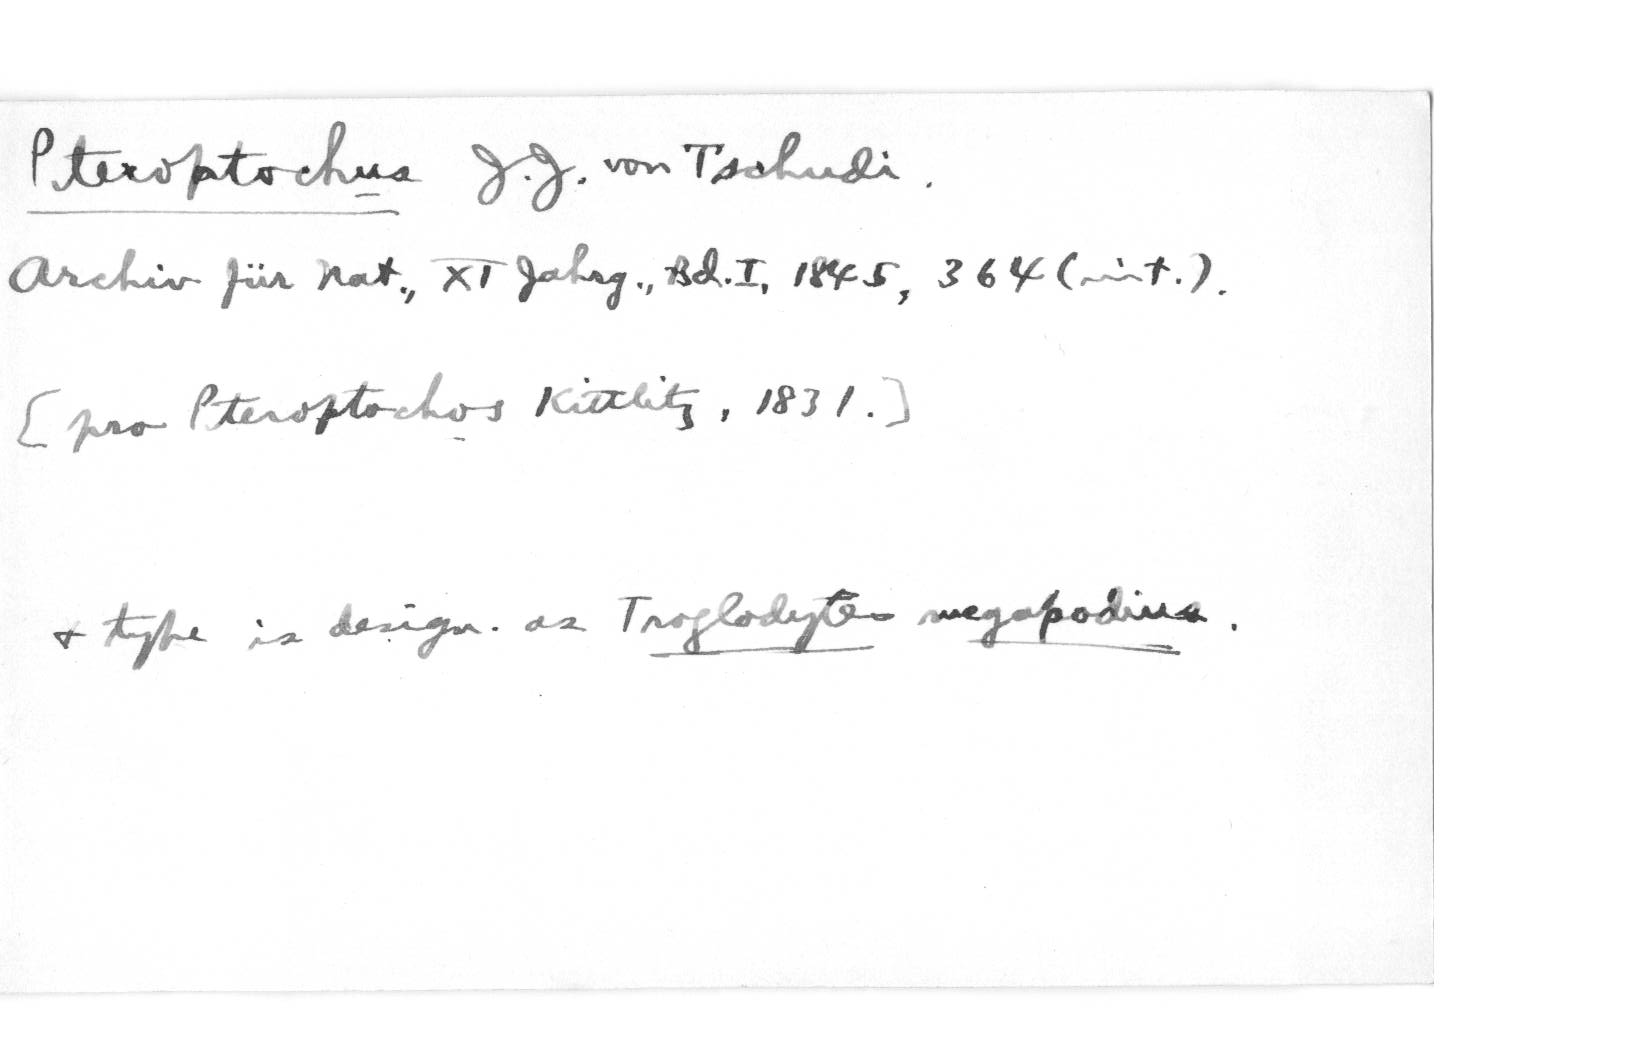 Pteroptochus J.J. von Tschudi.
Archiv für Nat., XI Jahrg., Bd. I, 1845, 364 (int.).
[pro Pteroptochos Kittlitz, 1831.]
& type is design. as Troglodytes megapodius.